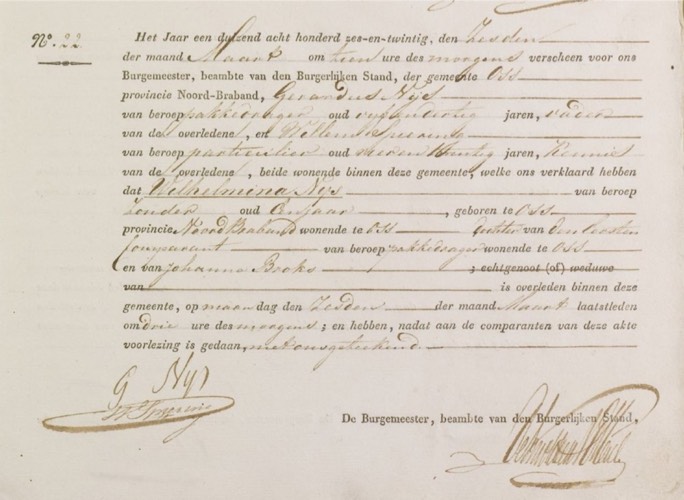 No. 22.
Het Jaar een duizend acht honderd zes-en-twintig, den Zesden
der maand Maart om tien ure des morgens verscheen voor ons
Burgemeester, beambte van den Burgerlijken Stand, der gemeente Oss
provincie Noord-Braband, Gerardus Nijs
van beroep pakkedrager oud jaren, vader
van de overledene, en Willem
van beroep particulier oud jaren, Kennis
van de overledene, beide wonende binnen deze gemeente, welke ons verklaard hebben
dat Wilhelmina Nijs van beroep
Zonder oud Een jaar, geboren te Oss
provincie Noord Braband wonende te Oss dochter van den eersten
Comparant van beroep pakkedrager wonende te Oss
en van Johanna Broks ; echtgenoot (of) weduwe
van is overleden binnen deze
gemeente, op maandag den Zesden der maand Maart laatstleden
om drie ure des morgens; en hebben, nadat aan de comparanten van deze akte
voorlezing is gedaan, met ons geteekend.
G Nijs
De Burgemeester, beambte van den Burgerlijken Stand,